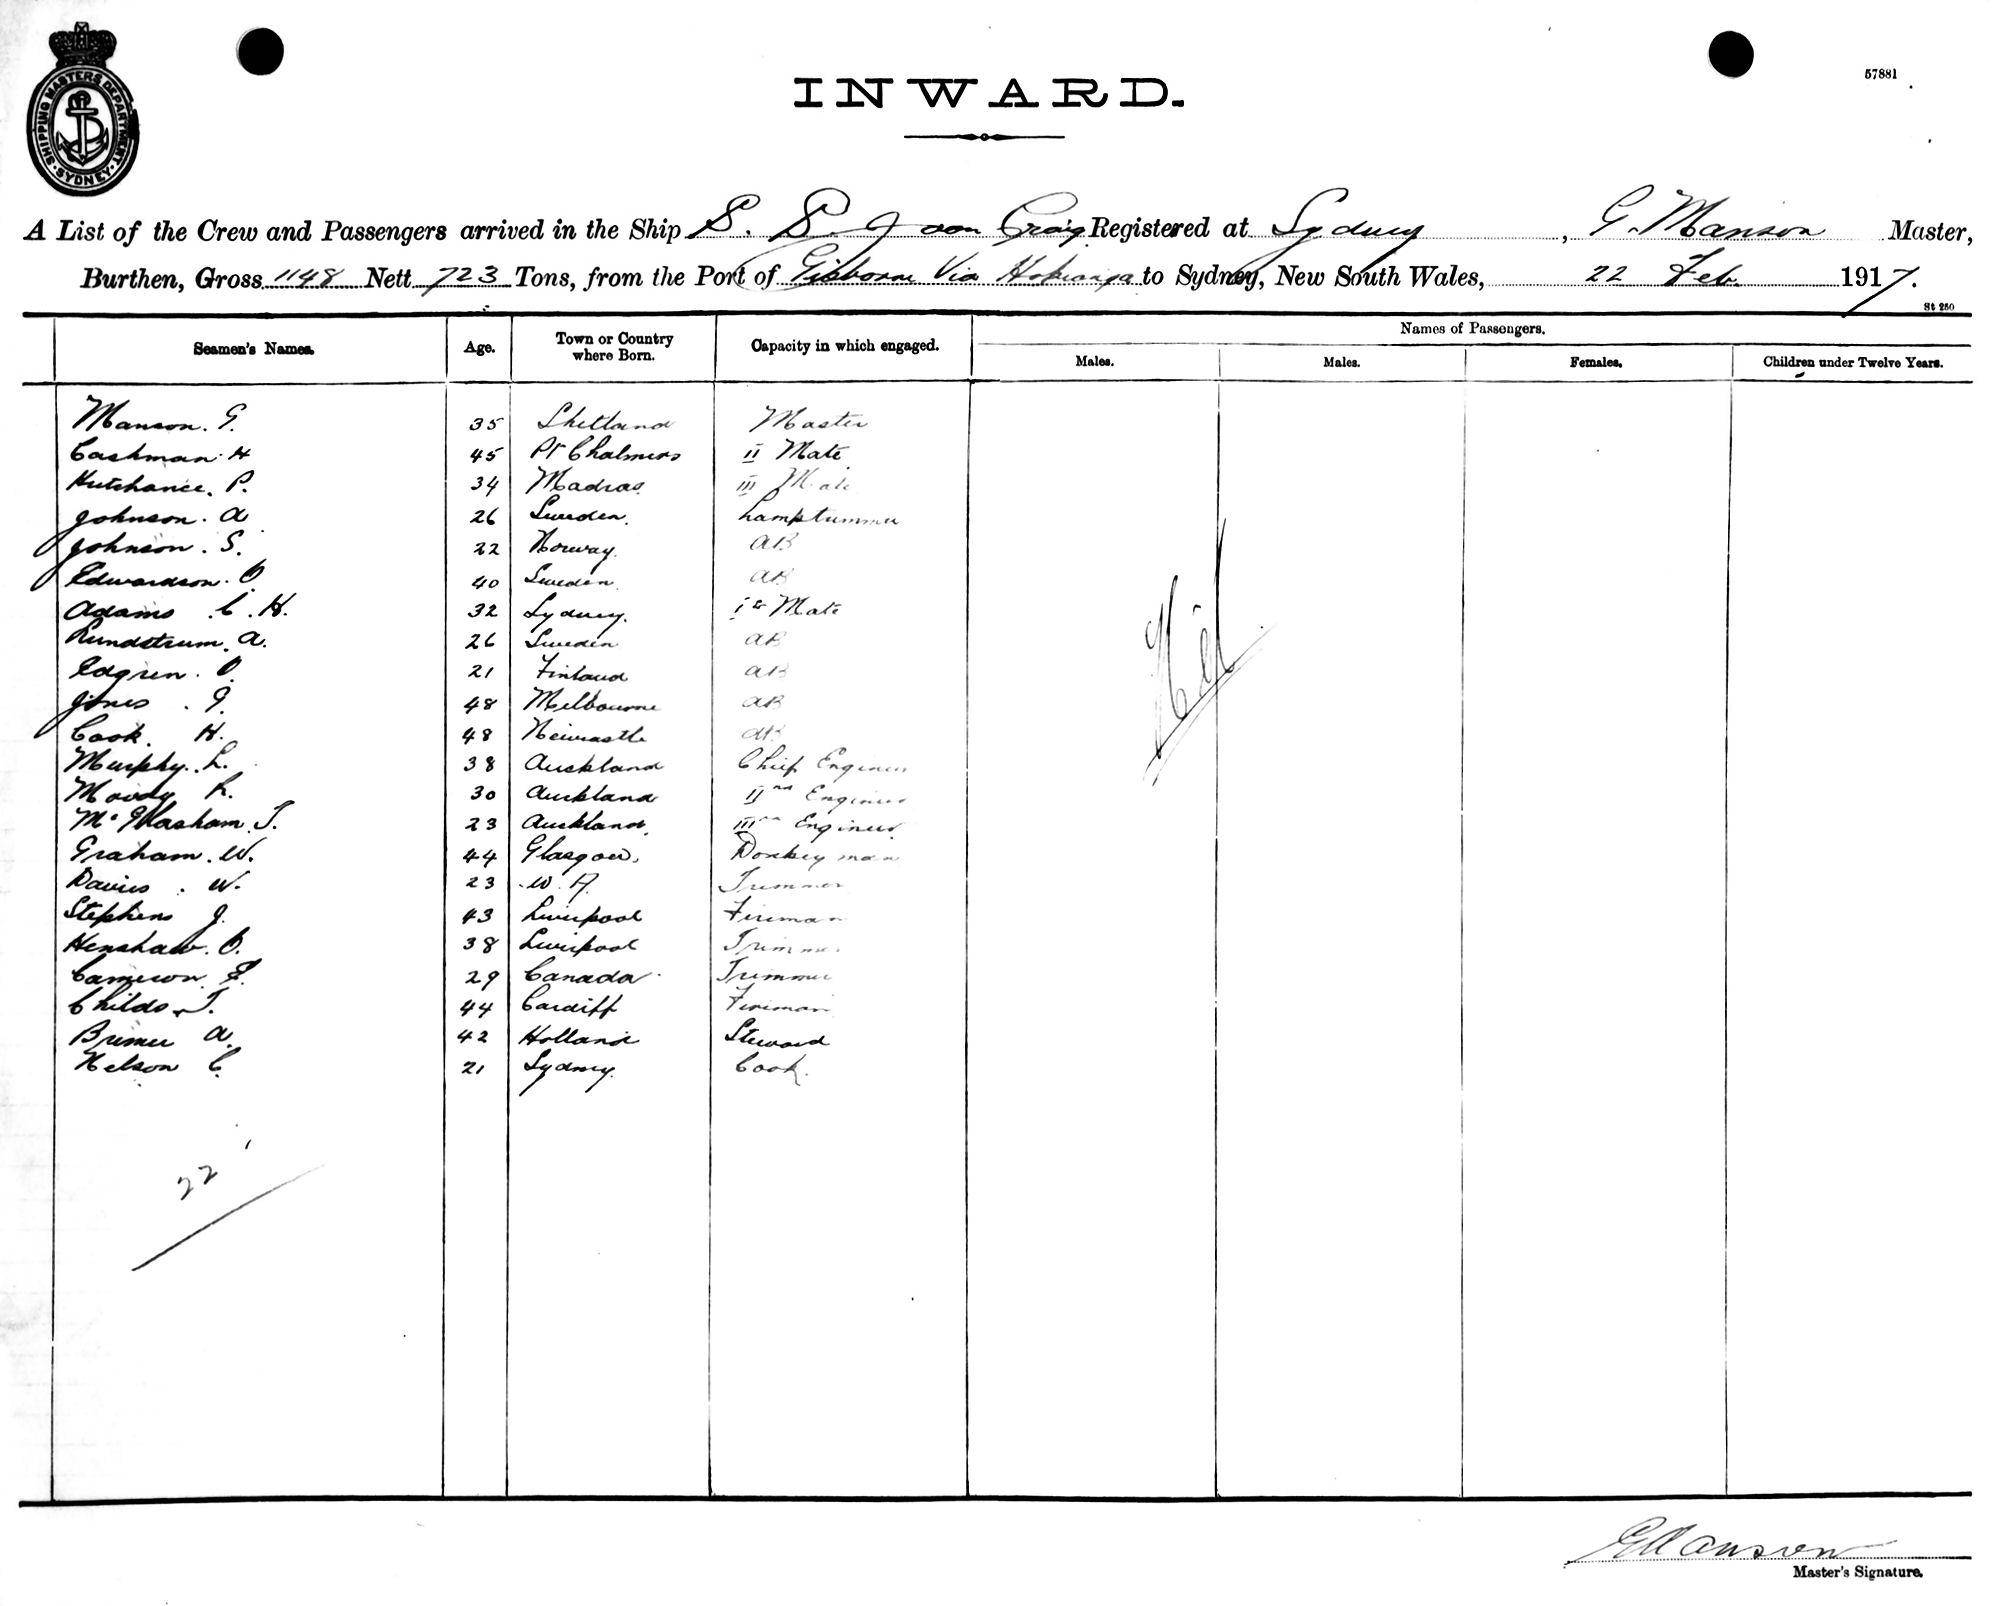 SHIPPING MASTERS DEPARTMENT
SYDNEY
57881
INWARD.
A List of the Crew and Passengers arrived in the Ship S. S. Joan Craig Registered at Sydney, G. Manson Master,
Burthen, Gross 1148 Nett 723 Tons, from the Port of Gisborne Via Hokianga to Sydney, New South Wales, 22 Feb. 1917.
St 250
Seamen's Names. Age. Town or Country where Born. Capacity in which engaged. Names of Passengers.
Males. Males. Females. Children under Twelve Years.
Manson. G. 35 Shetland Master
Cashman. H 45 Pt Chalmers II Mate
Hutchance. P. 34 Madras III Mate
Johnson. A 26 Sweden. Lamptrimmer
Johnson. S. 22 Norway. AB
Edwardson. O 40 Sweden. AB
Adams. C. H. 32 Sydney. 1st Mate
Rundstrum. A. 26 Sweden AB
Edgren. O. 21 Finland AB
Jones. G. 48 Melbourne AB
Cook. H. 48 Newcastle AB
Murphy. L. 38 Auckland Chief Engineer
Moody R. 30 Auckland IInd Engineer
Mc Glasham. T. 23 Auckland. III Engineer
Graham. W. 44 Glasgow. Donkeyman
Davies. W. 23 W. A. Trimmer
Stephens J. 43 Liverpool Fireman
Henshaw. O. 38 Liverpool Trimmer
Cameron. F. 29 Canada Trimmer
Childs. T. 44 Cardiff Fireman
Bremer A. 42 Holland Steward
Nelson C. 21 Sydney. Cook.
Nil
22
G Manson
Master's Signature.